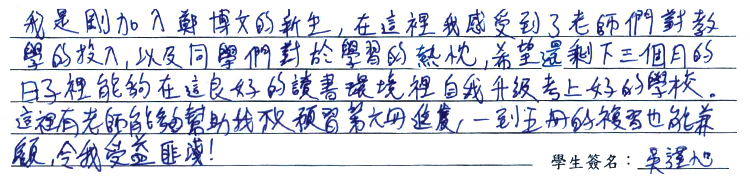 我是剛加入鄭博文的新生，在這裡我感受到了老師們對教
學的投入，以及同學們對於學習的熱忱，希望還剩下三個月的
日子裡能夠在這良好的讀書環境裡自我升級考上好的學校。
這裡有老師能夠幫助找我預習第六冊進度，一到五冊的複習也能兼
顧，令我受益匪淺！
學生簽名：吳